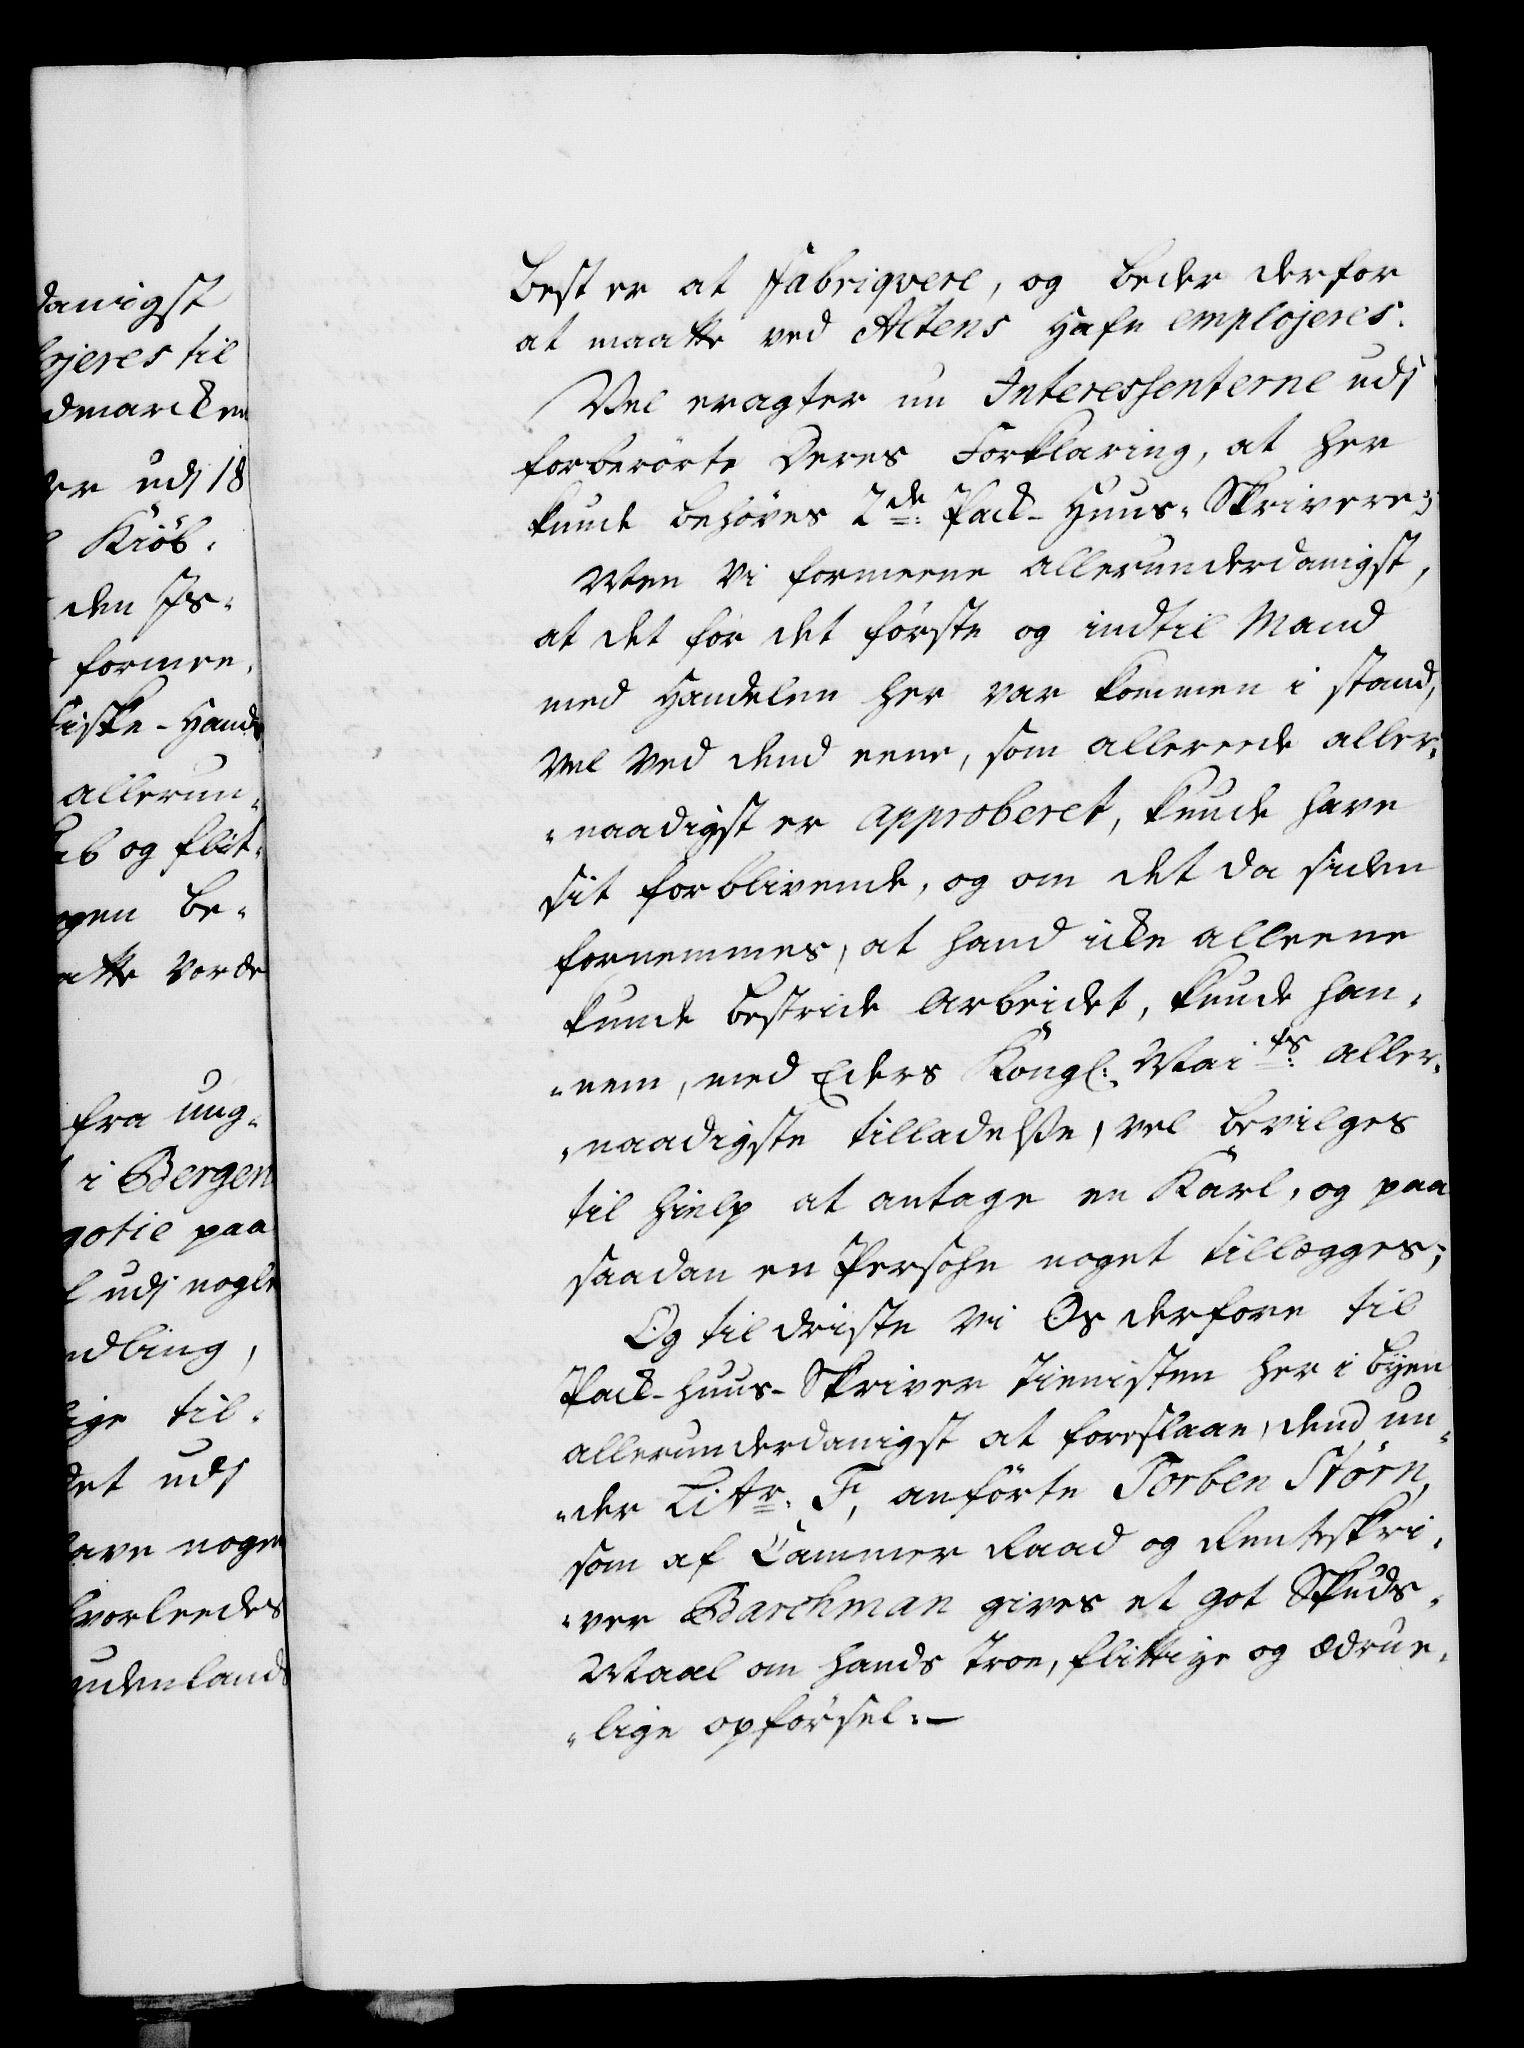 danigst
ojeres til
dmarcken
er udj 18
Kiöb-
den Is-
formee-
Fiske-Hand
allerun-
ab og flit-
ogen be-
atte vorde
fra ung-
i Bergen
gotie paa
l udj nogle
ndling,
lige til-
det udj
have nogen
hvorleedes
udenlands
best er at Fabriqvere, og beder derfor
at maatte ved Altens Hafn emplojeres.
Vel eragter nu Interessenterne udj
forberörte Deres Forklaring, at her
kunde behöves 2de: Pack-Huus-Skrivere;
Men Vi formeene allerunderdanigst,
at det for det förste og indtil Mand
med Handelen her var kommen i stand,
vel ved dend eene, som allereede aller-
-naadigst er approberet, kunde have
sit forblivende, og om det da siden
fornemmes, at hand icke alleene
kunde bestride Arbeidet, kunde han-
-nem, med Eders Kongl: Maits: aller-
-naadigste tilladelße, vel bevilges
til hielp at antage en Karl, og paa
saadan en Persohn noget tillægges;
Og til driste Vi Os derfore til
Pack-huus-Skriver tienisten her i byen
allerunderdanigst at foreslaae, dend un-
-der Litr: F, anförte Torben Störn,
som af Cammer Raad og Renteskri-
-ver Barchman gives et got Skuds-
Maal om hands troe, flittige og ædrue-
-lige opförsel.-